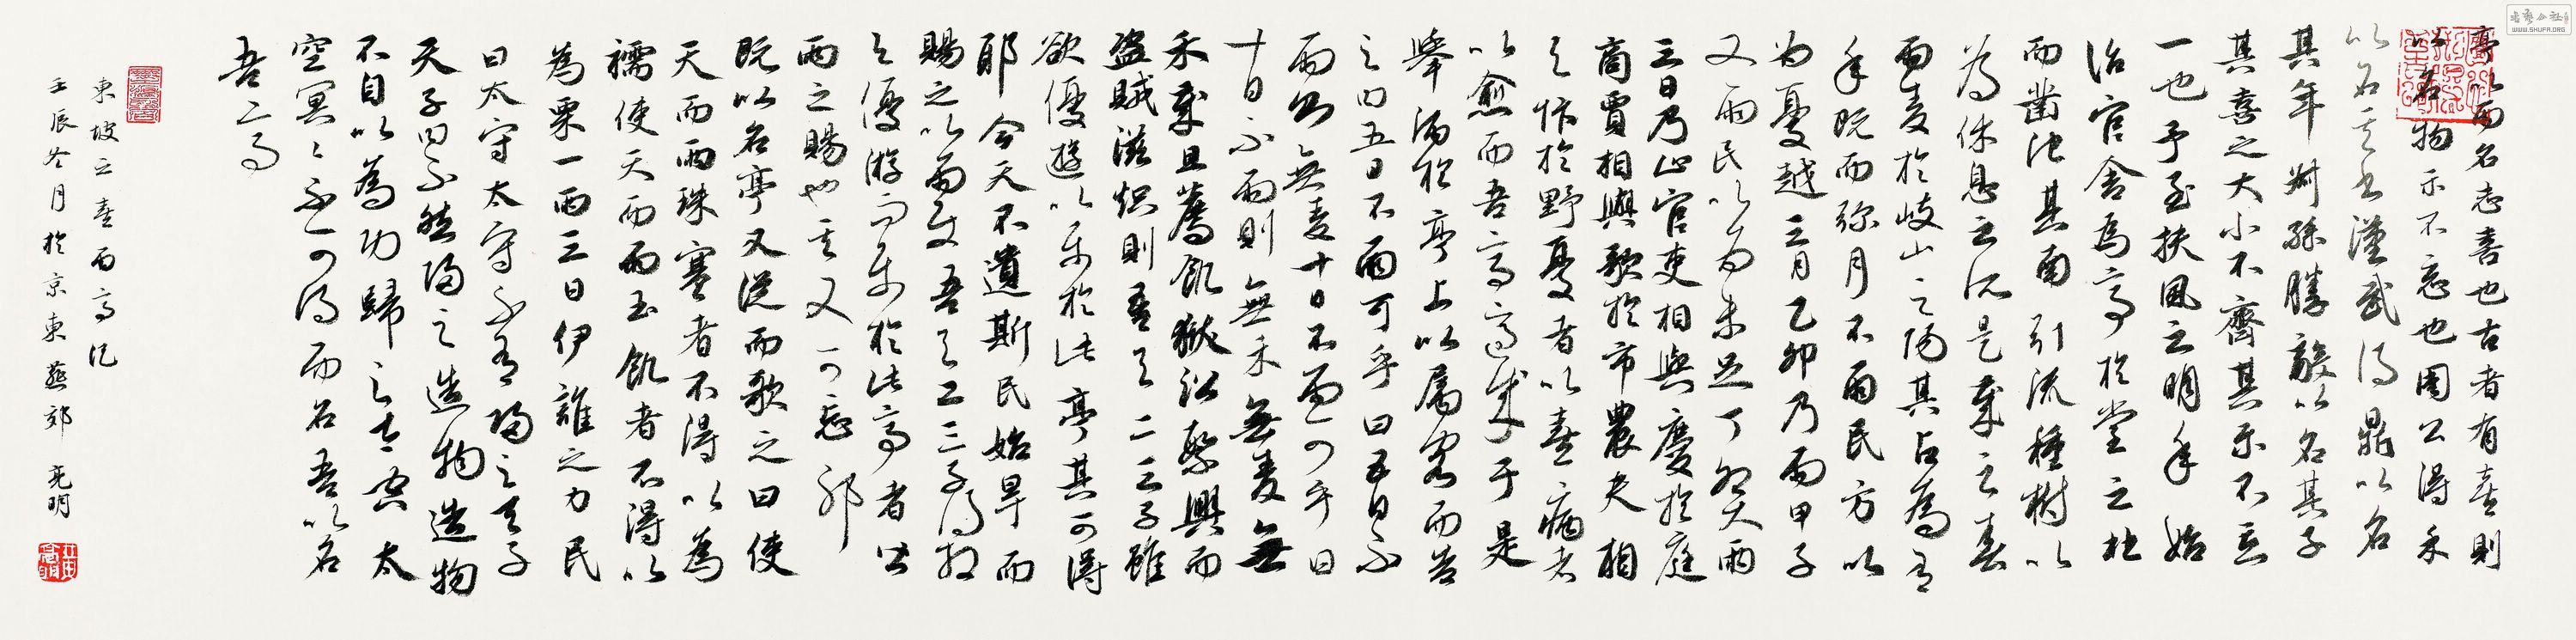 亭以雨名志喜也古者有喜則
以名物示不忘也周公得禾
以名其書漢武得鼎以名
其年叔孫勝敵以名其子
其喜之大小不齊其示不忘
一也予至扶風之明年始
治官舍為亭於堂之北
而鑿池其南引流種樹以
為休息之所是歲之春
雨麥於岐山之陽其占為有
年既而彌月不雨民方以
為憂越三月乙卯乃雨甲子
又雨民以為未足丁卯大雨
三日乃止官吏相與慶於庭
商賈相與歌於市農夫相
與忭於野憂者以喜病者
以愈而吾亭適成于是
舉酒於亭上以屬客而告
之曰五日不雨可乎曰五日不
雨則無麥十日不雨可乎曰
十日不雨則無禾無麥無
禾歲且薦飢獄訟繁興而
盜賊滋熾則吾與二三子雖
欲優遊以樂於此亭其可得
耶今天不遺斯民始旱而
賜之以雨使吾與二三子得相
與優游而樂於此亭者皆
雨之賜也其又可忘耶
既以名亭又從而歌之曰使
天而雨珠寒者不得以為
襦使天而雨玉飢者不得以
為粟一雨三日伊誰之力民
曰太守太守不有歸之天子
天子曰不然歸之造物造物
不自以為功歸之太空太
空冥冥不可得而名吾以名
吾亭
東坡之喜雨亭記
壬辰冬月於京東燕郊 亮明
WWW.SHUFA.ORG